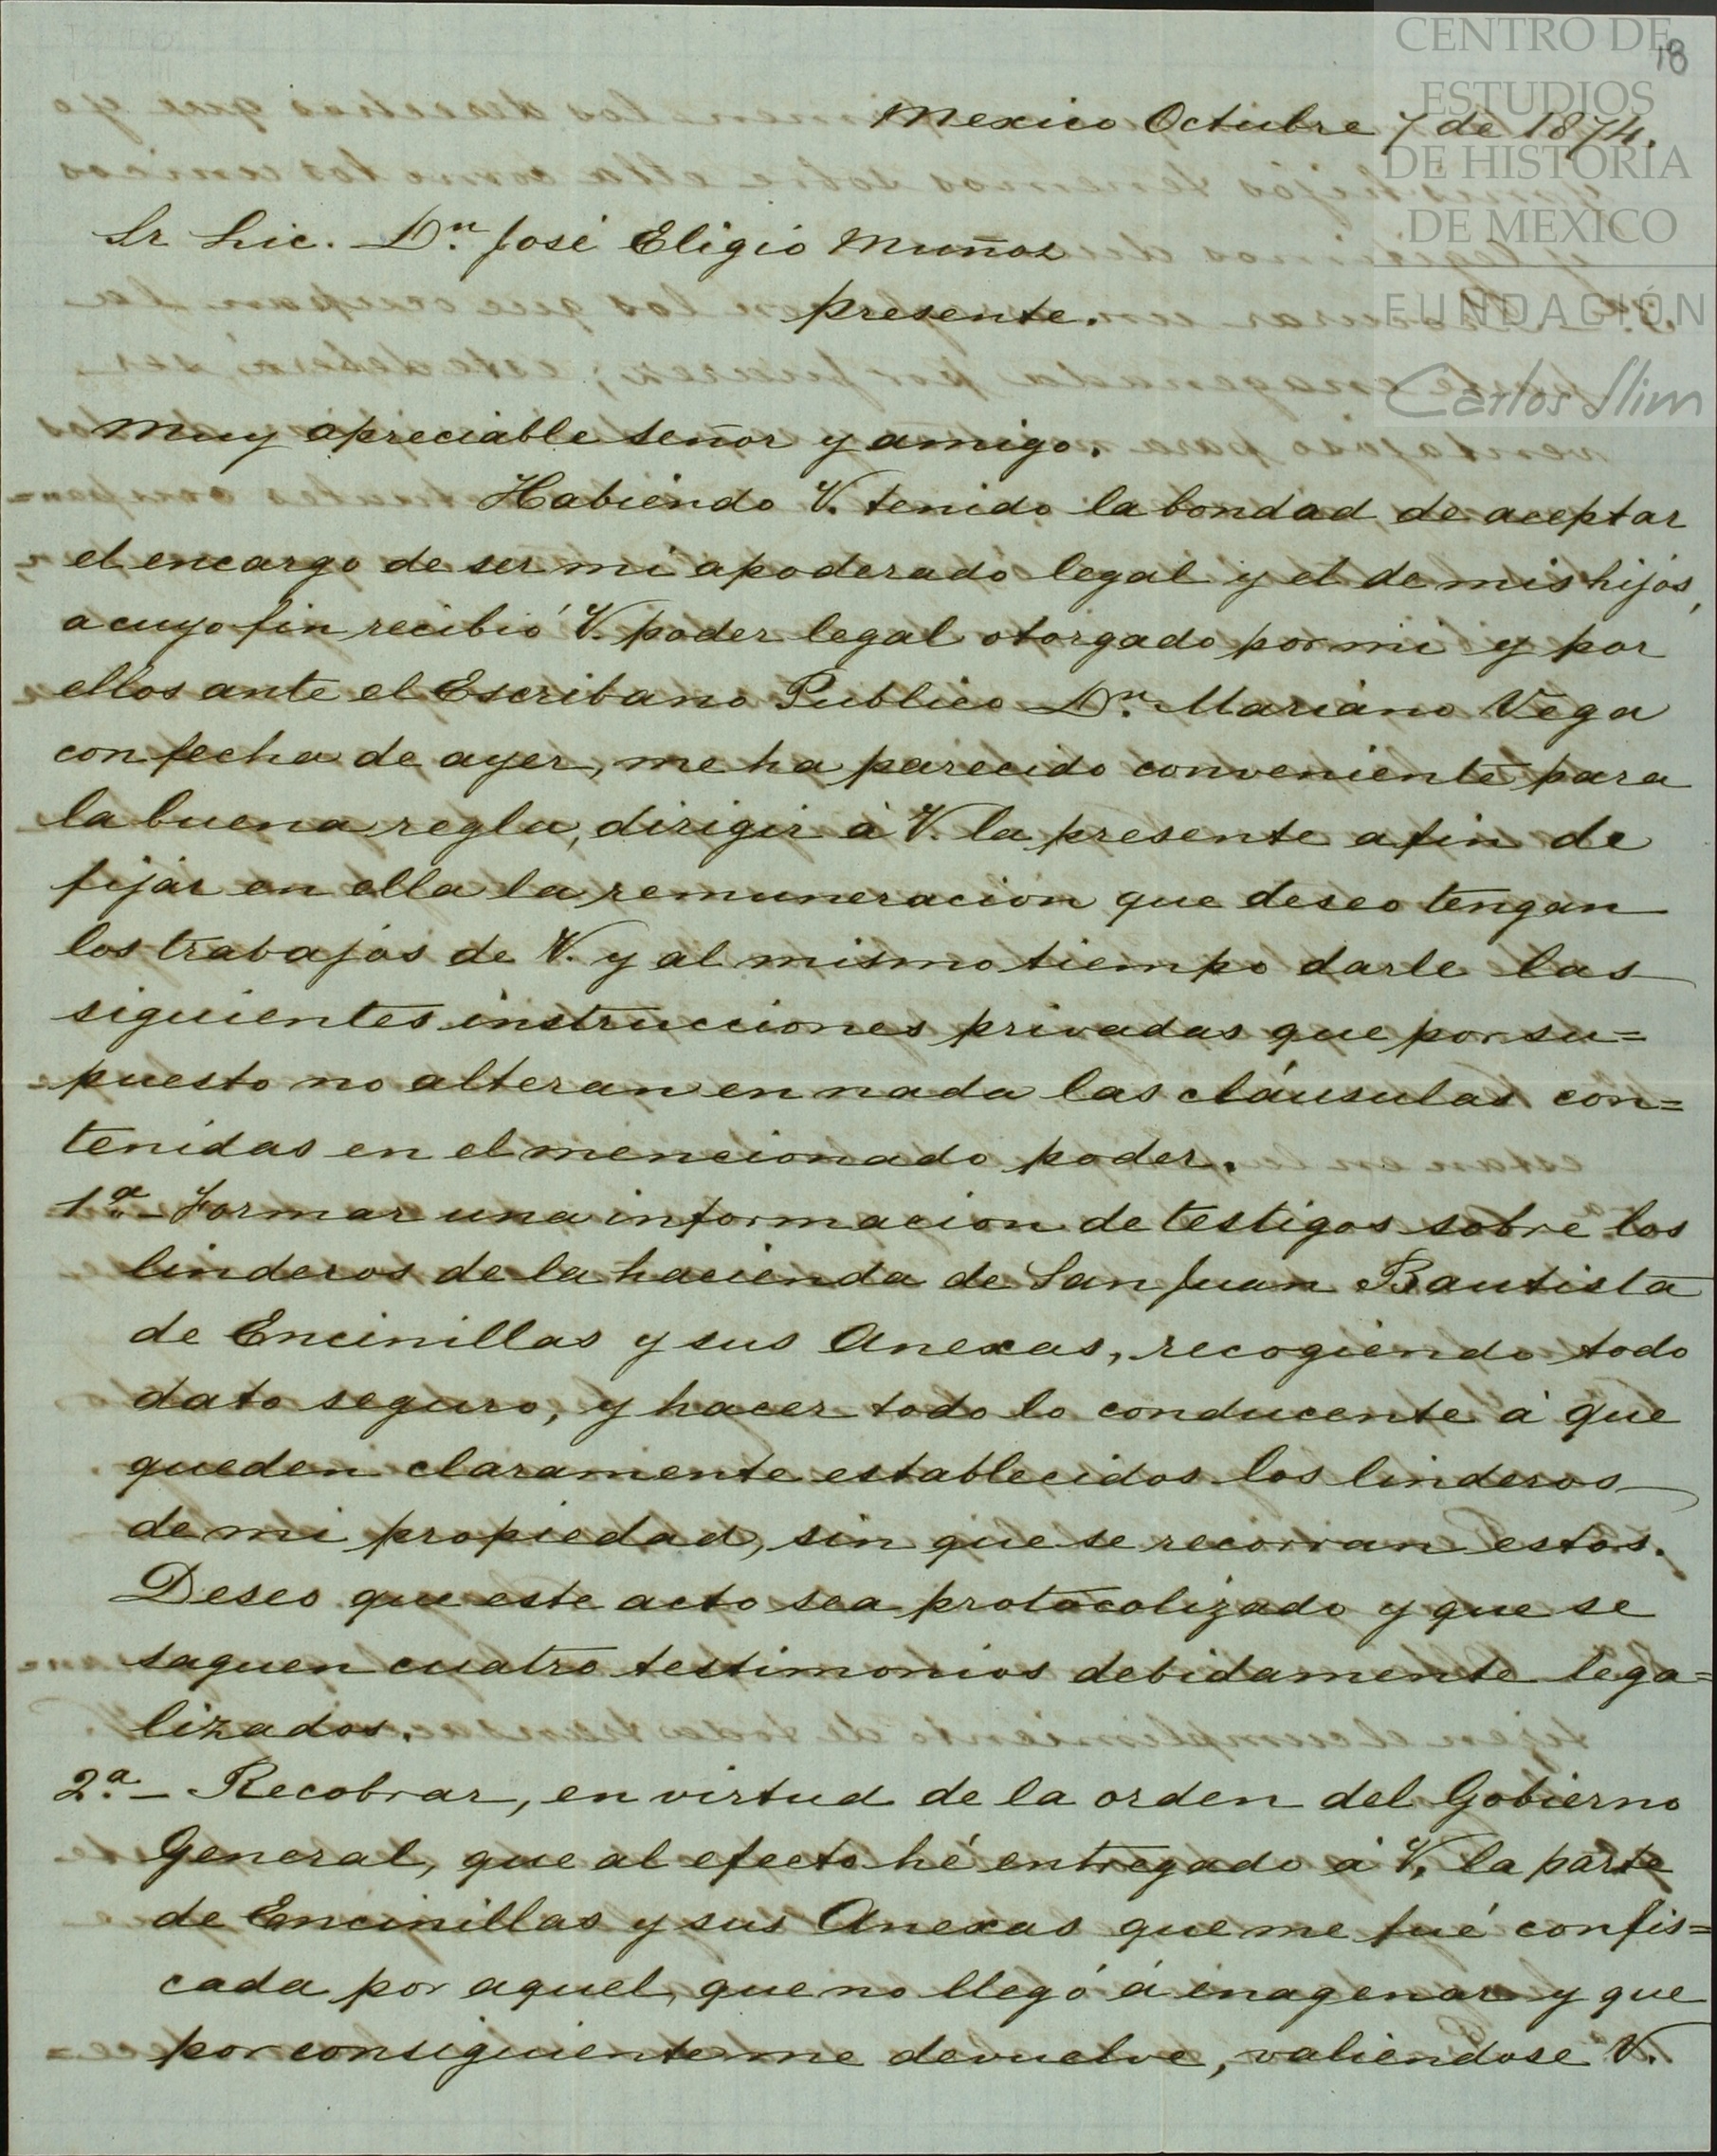 CENTRO DE
ESTUDIOS
DE HISTORIA
DE MEXICO
FUNDACIÓN
Carlos Slim
18
Mexico Octubre 7 de 1874.
Sr Lic. Dn. José Eligio Muñoz
presente.
Muy apreciable señor y amigo.
Habiendo V. tenido la bondad de aceptar
el encargo de ser mi apoderado legal y el de mis hijos,
a cuyo fin recibió V. poder legal otorgado por mi y por
ellos ante el Escribano Publico Dn. Mariano Vega
con fecha de ayer, me ha parecido conveniente para
la buena regla, dirigir á V. la presente a fin de
fijar en ella la remuneracion que deseo tengan
los trabajos de V. y al mismo tiempo darle las
siguientes instrucciones privadas que por su=
puesto no alteran en nada las cláusulas con=
tenidas en el mencionado poder.
1ª.- Formar una informacion de testigos sobre los
linderos de la hacienda de San Juan Bautista
de Encinillas y sus Anexas, recogiendo todo
dato seguro, y hacer todo lo conducente á que
queden claramente establecidos los linderos
de mi propiedad, sin que se recorran estos.
Deseo que este acto sea protocolizado y que se
saquen cuatro testimonios debidamente lega=
lizados.
2ª.- Recobrar, en virtud de la orden del Gobierno
General, que al efecto hé entregado á V. la parte
de Encinillas y sus Anexas que me fué confis=
cada por aquel, que no llegó á enagenar y que
por consiguiente me devuelve, valiendose V.